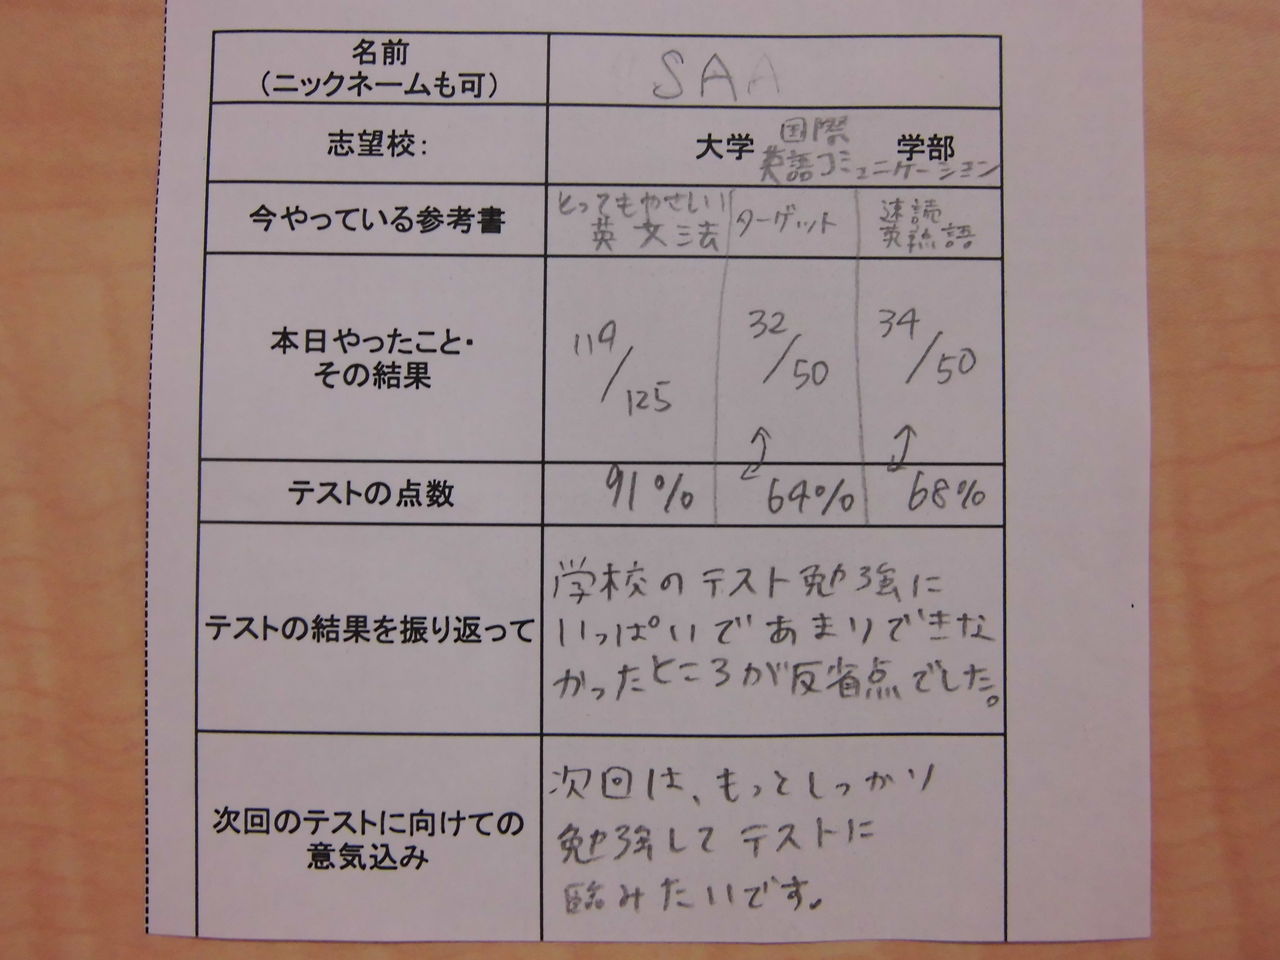 名前
（ニックネームも可）
SAA
志望校：
大学 国際 学部
英語コミュニケーション
今やっている参考書
とってもやさしい
英文法
ターゲット
速読
英熟語
本日やったこと・
その結果
119/125
32/50
34/50
テストの点数
91%
64%
68%
テストの結果を振り返って
学校のテスト勉強に
いっぱいであまりできな
かったところが反省点でした。
次回のテストに向けての
意気込み
次回は、もっとしっかり
勉強してテストに
臨みたいです。